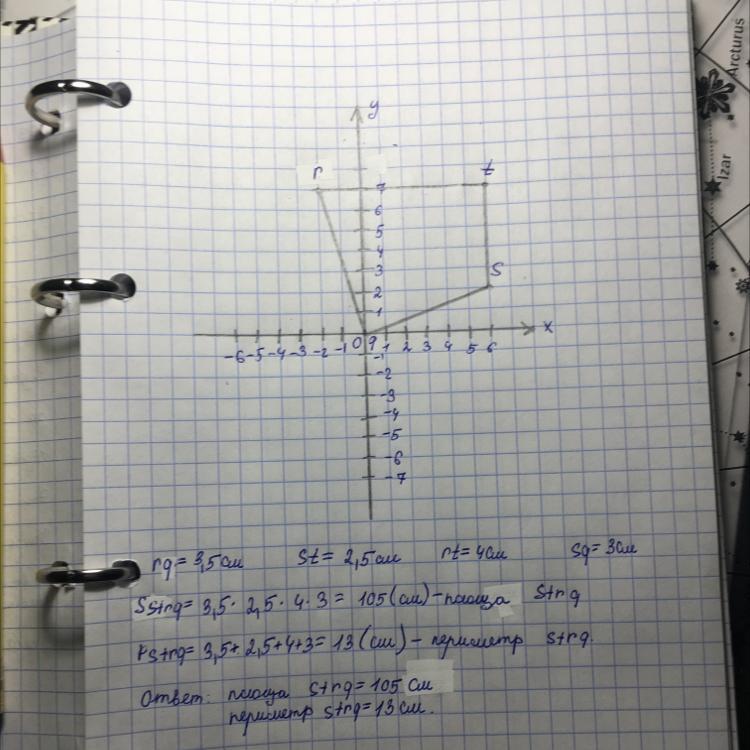 Arcturus
Izar
y
r
t
7
6
5
4
3
2
1
S
x
-6 -5 -4 -3 -2 -1 0 q 1 2 3 4 5 6
-1
-2
-3
-4
-5
-6
-7
rq = 3,5 см   St = 2,5 см   rt = 4 см   Sq = 3 см
Sstrq = 3,5 · 2,5 · 4 · 3 = 105 (см) – площа strq
Pstrq = 3,5 + 2,5 + 4 + 3 = 13 (см) – периметр strq.
Ответ: площа strq = 105 см
периметр strq = 13 см.